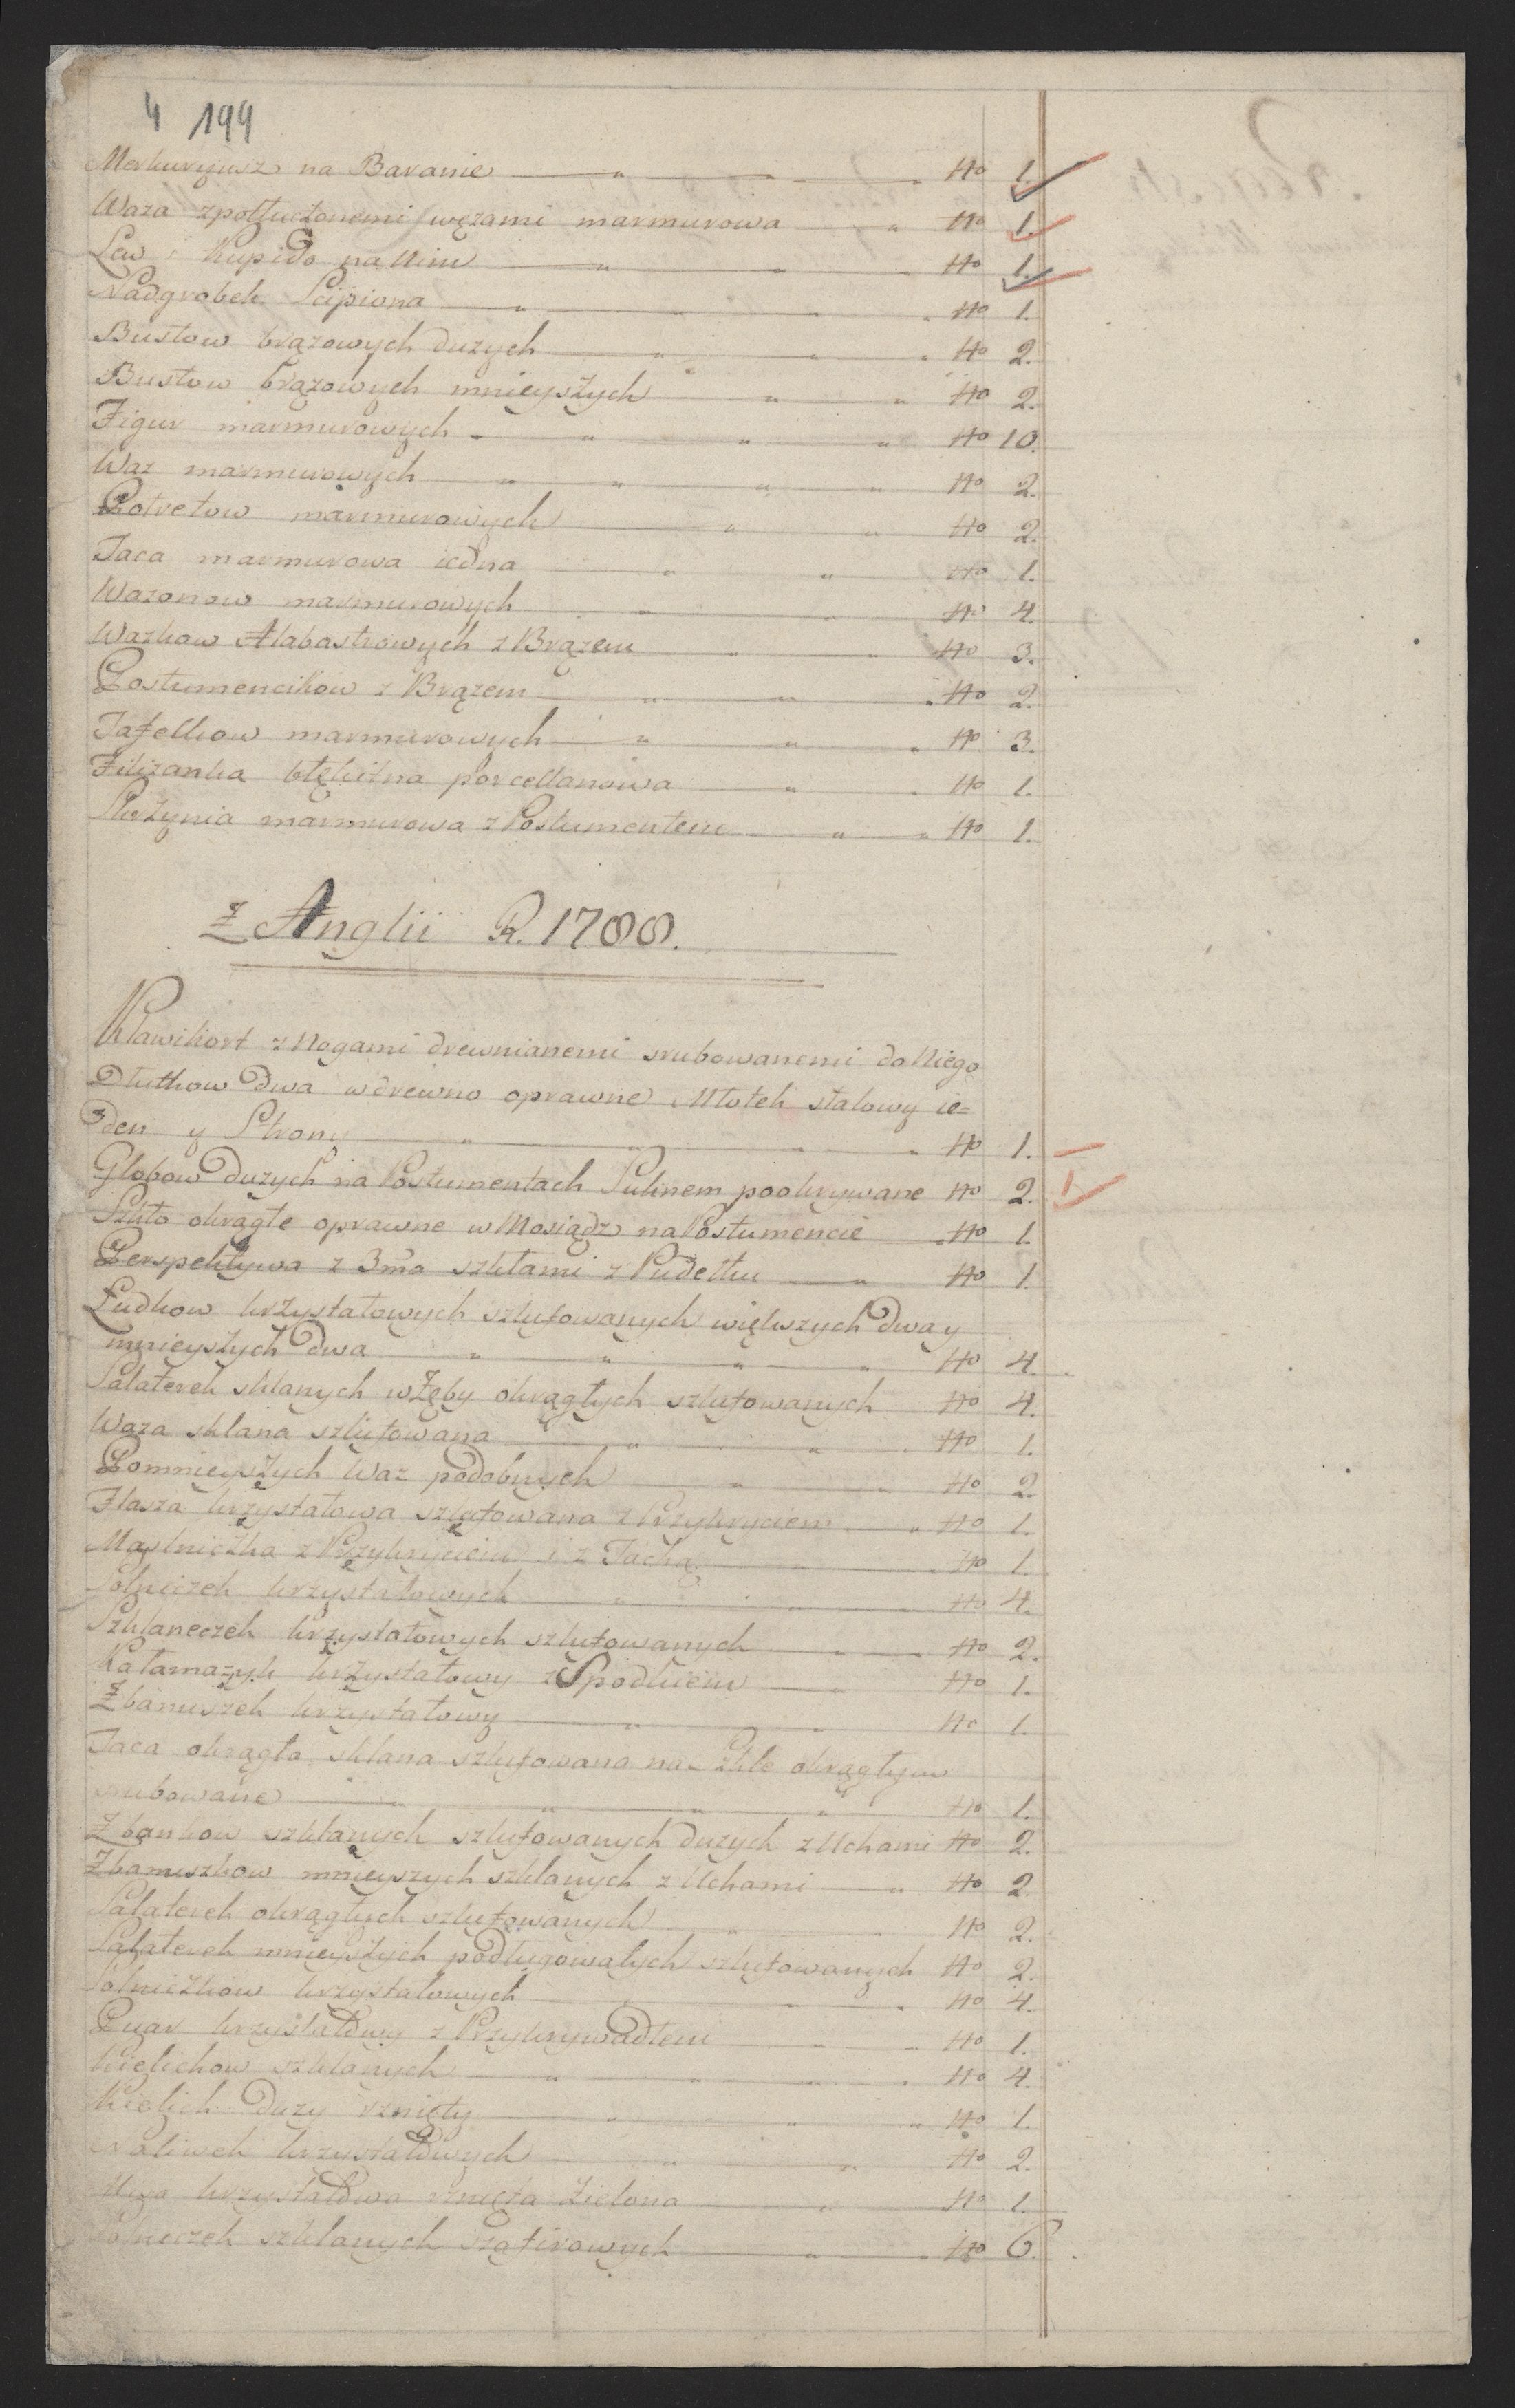 4 199
Merkuryusz na Baranie " " " No 1.
Waza z potłuczonemi wężami marmurowa " No 1.
Lew i Kupido na Nim " " " No 1.
Nadgrobek Scipiona " " " " No 1.
Bustow brązowych dużych " " " No 2.
Bustow brązowych mnieyszych " " No 2.
Figur marmurowych " " " No 10.
Waz marmurowych " " " " No 2.
Potretow marmurowych " " No 2.
Taca marmurowa iedna " " No 1.
Wazonow marmurowych " " No 4.
Wazkow Alabastrowych z Brązem " " No 3.
Postumencikow z Brązem " " " No 2.
Tafelkow marmurowych " " " No 3.
Filiżanka błękitna porcellanowa " " No 1.
Skrzynia marmurowa z Postumentem " " No 1.
Z Anglii R. 1788.
Klawikort z Nogami drewnianemi srubowanemi do Niego
Dłutkow Dwa w drewno oprawne Młotek stalowy ie=
den y Strony " " " " No 1.
Globow Dużych na Postumentach Suknem pookrywane No 2.
Szkło okrągłe oprawne w Mosiądz na Postumencie No 1.
Perspektywa z 3ma szkłami z Pudełku " No 1.
Pudkow krzyształowych szlufowanych większych Dwa y
mnieyszych Dwa " " " " No 4.
Salaterek sklanych w Zęby okrągłych szlufowanych No 4.
Waza sklana szlufowana " " No 1.
Pomnieyszych Waz podobnych " " No 2.
Flasza krzyształowa szlufowana z Przykryciem " No 1.
Maslniczka z Przykryciem i z Tacką " No 1.
Solniczek krzyształowych " " No 4.
Szklaneczek krzyształowych szlufowanych " No 2.
Kałamażyk krzyształowy z Spodkiem " No 1.
Zbanuszek krzyształowy " " No 1.
Taca okrągła sklana szlufowana na Szkle okrągłym
srubowane " " " " No 1.
Zbankow szklanych szlufowanych dużych z Uchami No 2.
Zbanuszkow mnieyszych szklanych z Uchami " No 2.
Salaterek okrągłych szlufowanych " No 2.
Salaterek mnieyszych podługowatych szlufowanych No 2.
Solniczkow krzyształowych " No 4.
Puar krzyształowy z Przykrywadłem " No 1.
Kielichow szklanych " " " No 4.
Kielich Duży rznięty " " " No 1.
Naliwek krzyształowych " " No 2.
krzyształowa rznięta Zielona " No 1.
Solniczek szklanych szafirowych " " No 6.